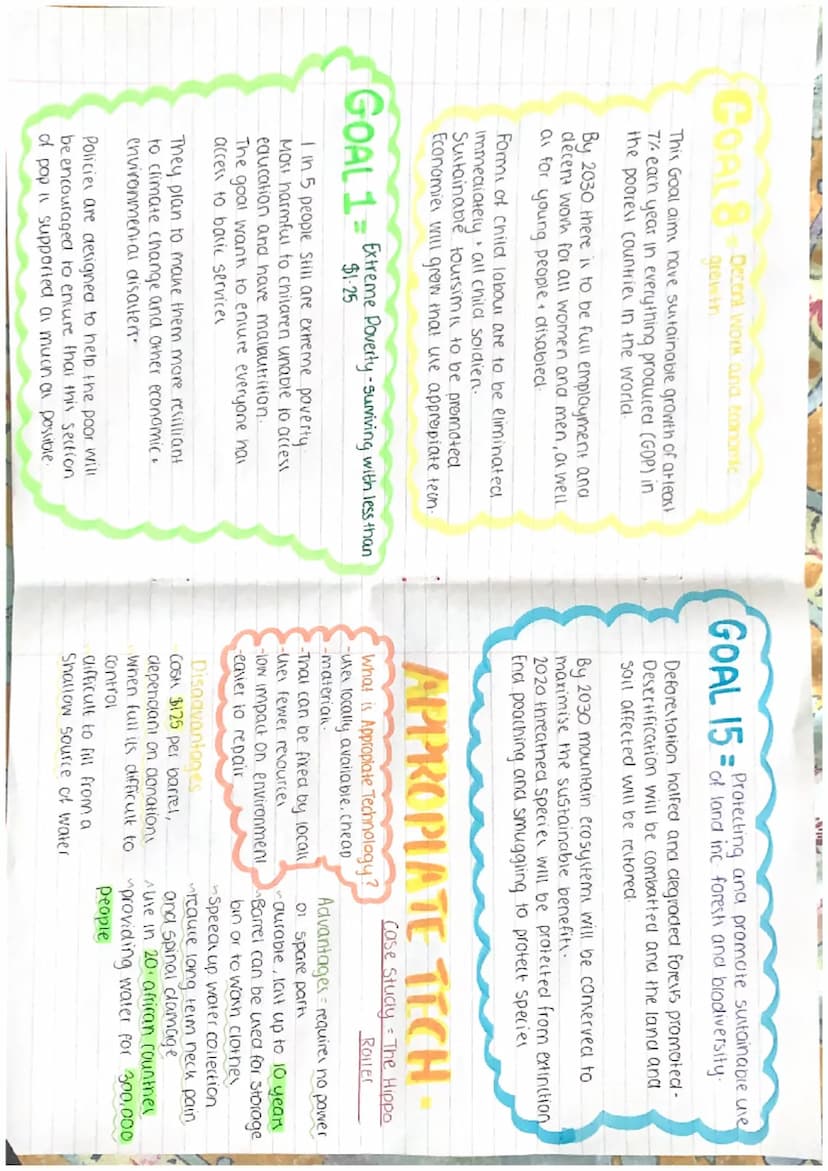 GOAL 8 = Decent work and Economic
growth
This Goal aims have sustainable growth of atleast
7% each year in everything produced (GDP) in
the poorest countries in the world.
By 2030 there is to be full employment and
decent work for all women and men, as well
as for young people + disabled.
Forms of child labour are to be eliminated
immediately + all child soldiers.
Sustainable toursim is to be promoted
Economies will grow that use appropiate tech.
GOAL 1 = Extreme Poverty - surviving with less than
$1.25
1 in 5 people still are extreme poverty
Most harmful to children unable to access
education and have malnutrition.
The goal wants to ensure everyone has
access to basic services
They plan to make them more resiliant
to climate change and other economic +
environmental disasters.
Policies are designed to help the poor will
be encouraged to ensure that this section
of pop is supported as much as possible.
GOAL 15 = Protecting and promote sustainable use
of land inc forests and biodiversity.
Deforestation halted and degraded forests promoted.
Desertification will be combatted and the land and
soil affected will be restored
By 2030 mountain ecosystems will be conserved to
maximise the sustainable benefits.
2020 threatned species will be protected from extinction
End poaching and smuggling to protect species
APPROPIATE TECH.
What is Appropiate Technology?
-uses locally available, cheap
-materials.
-That can be fixed by locals
-uses fewer resources
-low impact on environment
-easier to repair
Disadvantages
Costs $125 per barrel,
dependant on donations
when full its difficult to
control
difficult to fill from a
shallow source of water
Case Study = The Hippo
Roller
Advantages = requires no power
or spare parts
~durable, last up to 10 years
~Barrel can be used for storage
bin or to wash clothes
~Speeds up water collection
~reduce long term neck pain
and spinal damage
~use in 20+ african countries
~providing water for 300,000
people